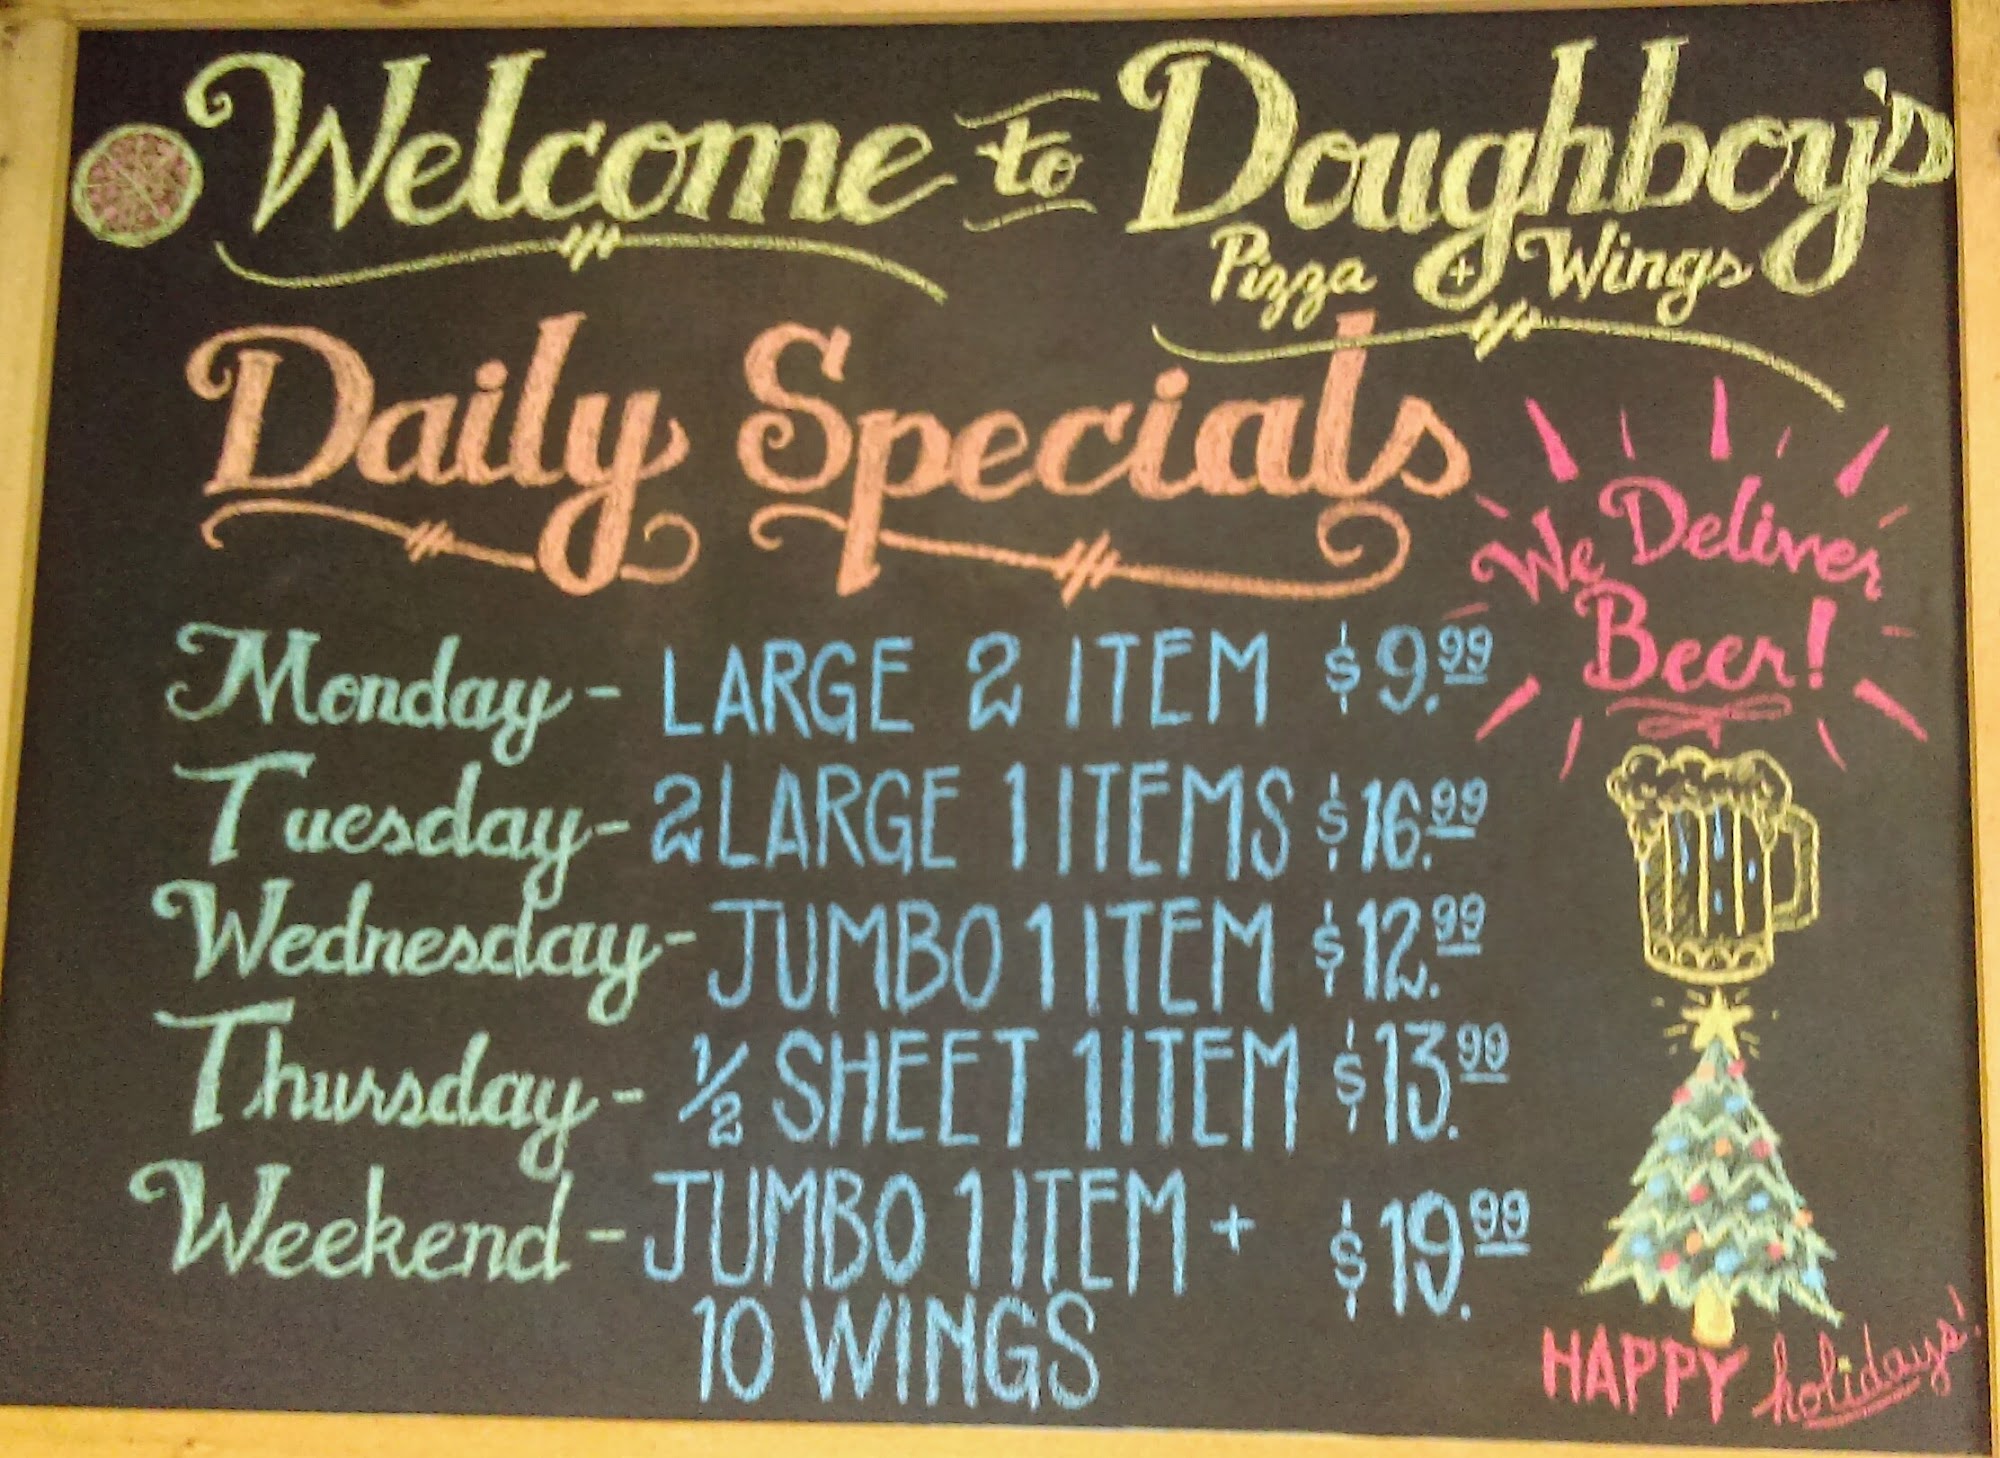 Welcome to Doughboy's
Pizza + Wings
Daily Specials
We Deliver
Beer!
Monday - LARGE 2 ITEM $9.99
Tuesday - 2 LARGE 1 ITEMS $16.99
Wednesday - JUMBO 1 ITEM $12.99
Thursday - ½ SHEET 1 ITEM $13.99
Weekend - JUMBO 1 ITEM + $19.99
10 WINGS
HAPPY holidays!